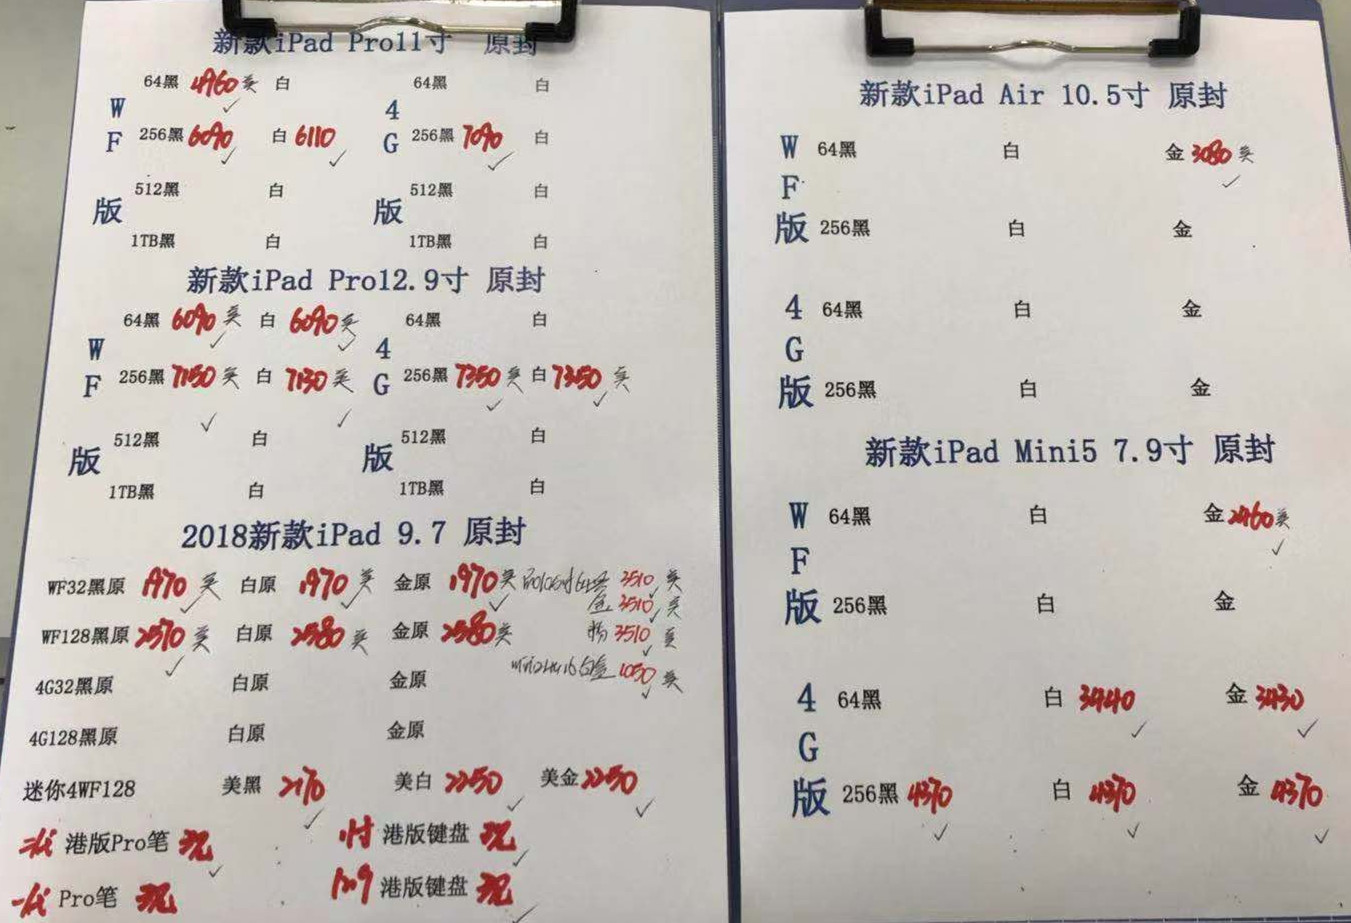 新款iPad Pro11寸 原封
64黑 4960 买 白 64黑 白
W 4
F 256黑 6090 白 6110 G 256黑 7090 白
512黑 白 512黑 白
版 版
1TB黑 白 1TB黑 白
新款iPad Pro12.9寸 原封
64黑 6090 买 白 6090 买 64黑 白
W 4
F 256黑 7150 买 白 7130 买 G 256黑 7350 买 白 7350 买
512黑 白 512黑 白
版 版
1TB黑 白 1TB黑 白
2018新款iPad 9.7 原封
WF32黑原 1970 买 白原 1970 买 金原 1970 买 3510 买
金 3510 买
WF128黑原 2570 买 白原 2580 买 金原 2580 买 粉 3510 买
1050 买
4G32黑原 白原 金原
4G128黑原 白原 金原
迷你4WF128 美黑 2170 美白 2250 美金 2250
二代 港版Pro笔 现 11寸 港版键盘 现
一代 Pro笔 现 12.9 港版键盘 现
新款iPad Air 10.5寸 原封
W 64黑 白 金 3080 买
F
版 256黑 白 金
4 64黑 白 金
G
版 256黑 白 金
新款iPad Mini5 7.9寸 原封
W 64黑 白 金 2460 买
F
版 256黑 白 金
4 64黑 白 3440 金 3430
G
版 256黑 4370 白 4370 金 4370